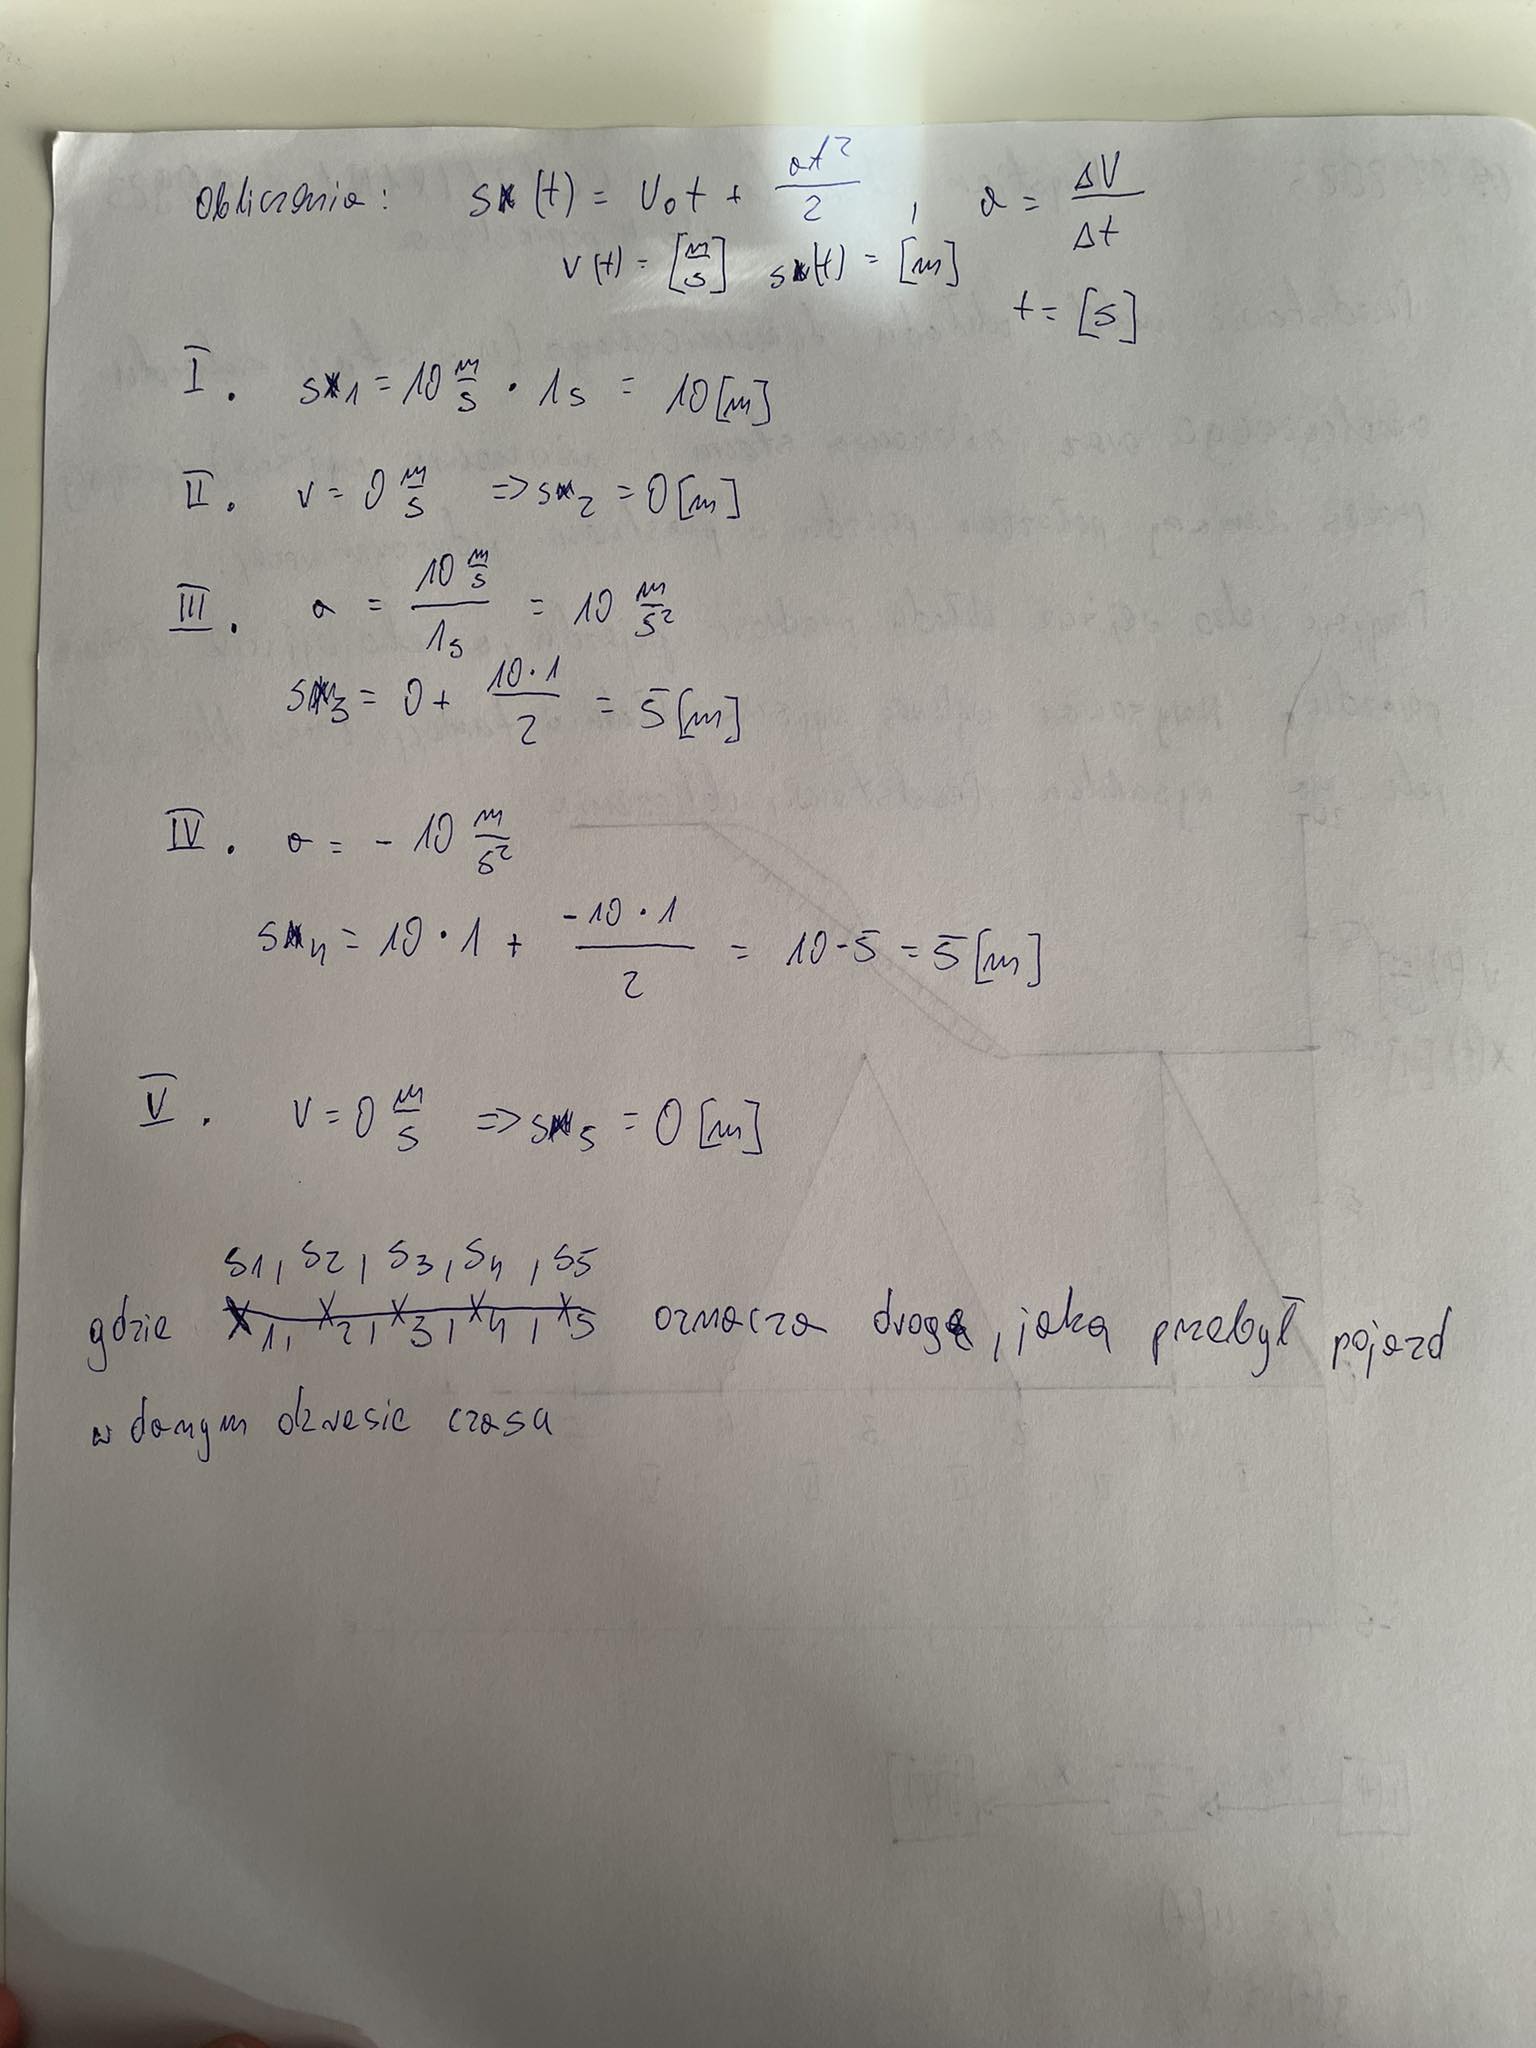 Obliczenia: s(t) = V₀t + at²/2 , a = ΔV/Δt
v(t) = [m/s] s(t) = [m]
t = [s]
I. s₁ = 10 m/s · 1s = 10 [m]
II. v = 0 m/s => s₂ = 0 [m]
III. a = 10 m/s / 1s = 10 m/s²
s₃ = 0 + 10·1/2 = 5 [m]
IV. a = - 10 m/s²
s₄ = 10 · 1 + -10 · 1/2 = 10 - 5 = 5 [m]
V. v = 0 m/s => s₅ = 0 [m]
s1, s2, s3, s4, s5
gdzie x1, x2, x3, x4, x5 oznacza drogę, jaką przebył pojazd
w danym okresie czasu